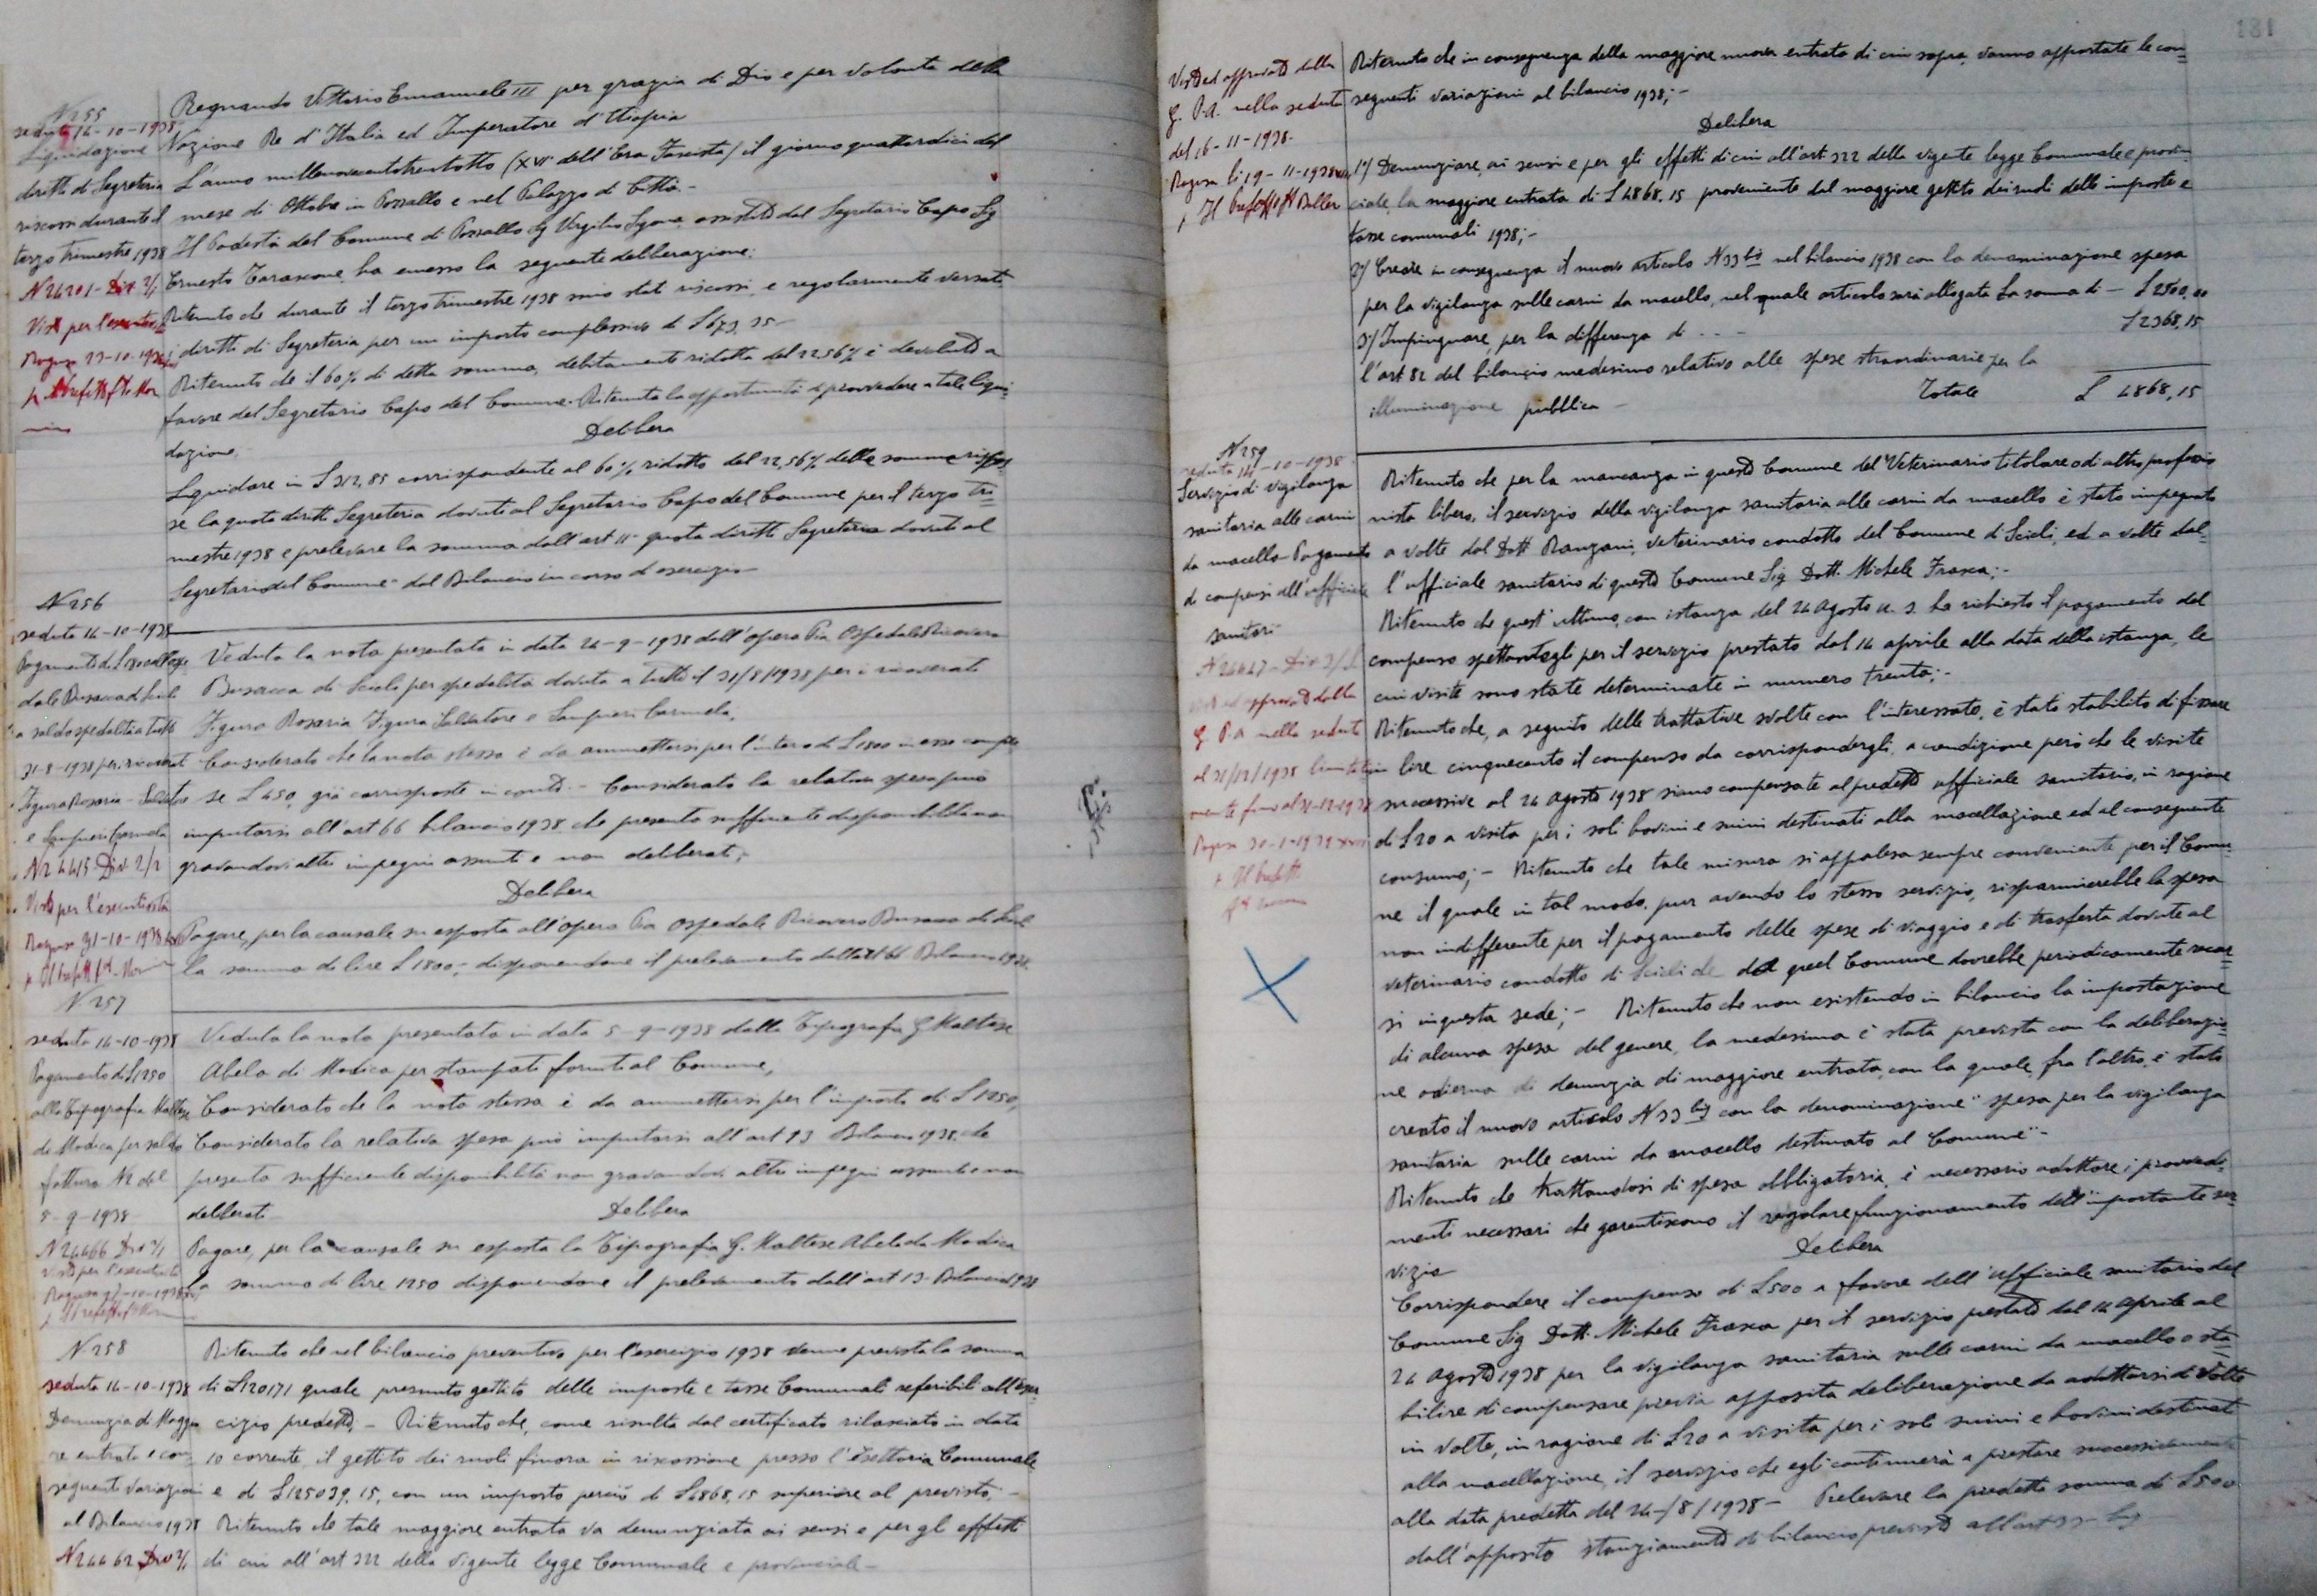 N 255
seduta 14-10-1938
Liquidazione
diritti di Segreteria
riscossi durante il
terzo trimestre 1938
N 24201 - Div 2/1
Visto per l'esecutività
Ragusa 23-10-1938
Regnando Vittorio Emanuele III per grazia di Dio e per volontà della
Nazione Re d'Italia ed Imperatore d'Etiopia
L'anno millenovecentotrentotto (XVI dell'Era Fascista) il giorno quattordici del
mese di Ottobre in Pozzallo e nel Palazzo di Città.-
Il Podestà del Comune di Pozzallo Sig Virgilio assistito dal Segretario Capo Sig
Ernesto Tarascone, ha emesso la seguente deliberazione:
Ritenuto che durante il terzo trimestre 1938 sono stati riscossi e regolarmente versati
i diritti di Segreteria per un importo complessivo di £ 673,35-
Ritenuto che il 60% di detta somma, debitamente ridotta del 22,56% è devoluto a
favore del Segretario Capo del Comune. Ritenuta la opportunità di provvedere a tale liqui-
dazione.
Delibera
Liquidare in £ 312,85 corrispondente al 60% ridotto del 22,56% delle somme riscos
se la quota diritti Segreteria dovuti al Segretario Capo del Comune per il terzo tri=
mestre 1938 e prelevare la somma dall'art 11 quota diritti Segreteria dovuti al
Segretario del Comune" del Bilancio in corso d'esercizio-
N 256
seduta 14-10-1938
Pagamento di £ 1800 all'ospe
dale Busacca di Scicli
a saldo spedalità a tutto
31-8-1938 per ricoverati
Figura Rosaria - Salvatore
e Sampieri Carmela
N 24415 Div 2/2
Visto per l'esecutività
Ragusa 31-10-1938
p Il Prefetto
Veduta la nota presentata in data 24-9-1938 dall'opera Pia Ospedale Ricovero
Busacca di Scicli per spedalità dovuta a tutto il 31/8/1938 per i ricoverati
Figura Rosaria Figura Salvatore e Sampieri Carmela,
Considerato che la nota stessa è da ammettersi per l'intero di £ 1800 in esso compre
se £ 450 già corrisposte in conto - Considerato la relativa spesa può
imputarsi all'art 66 bilancio 1938 che presenta sufficiente disponibilità non
gravandovi altri impegni assunti e non deliberati;
Delibera
Pagare, per la causale su esposta all'opera Pia Ospedale Ricovero Busacca di Scicli
la somma di lire £ 1800; disponendone il prelevamento dall'art 66 Bilancio 1938.
N 257
seduta 14-10-1938
Pagamento di £ 1250
alla Tipografia Maltese
di Modica per saldo
fattura N2 del
5-9-1938
N 24466 Div 2/1
Visto per l'esecutività
Ragusa 31-10-1938
Veduta la nota presentata in data 5-9-1938 dalla Tipografia G Maltese
Abela di Modica per stampati forniti al Comune,
Considerato che la nota stessa è da ammettersi per l'importo di £ 1250,
Considerato la relativa spesa può imputarsi all'art 13 Bilancio 1938 che
presenta sufficiente disponibilità non gravandovi altri impegni assunti e non
deliberati
Delibera
Pagare, per la causale su esposta la Tipografia G. Maltese Abela da Modica
la somma di lire 1250 disponendone il prelevamento dall'art 13 Bilancio 1938
N 258
seduta 14-10-1938
Denunzia di Maggio
re entrata e con
seguenti variazioni
al Bilancio 1938
N 24462 Div 2/1
Ritenuto che nel bilancio preventivo per l'esercizio 1938 venne prevista la somma
di £ 120171 quale presunto gettito delle imposte e tasse Comunali riferibili all'eser
cizio predetto,- Ritenuto che, come risulta dal certificato rilasciato in data
10 corrente, il gettito dei ruoli finora in riscossione presso l'Esattoria Comunale
e di £ 125039.15, con un importo perciò di £ 4868,15 superiore al previsto.-
Ritenuto che tale maggiore entrata va denunziata ai sensi e per gli effetti
di cui all'art 322 della vigente legge Comunale e provinciale-
181
Visto ed approvato dalla
G. P.A. nella seduta
del 16-11-1938.
Ragusa li 19-11-1938
p Il Prefetto
Ritenuto che in conseguenza della maggiore nuova entrata di cui sopra, vanno apportate le con=
seguenti variazioni al bilancio 1938;-
Delibera
1°/ Denunziare, ai sensi e per gli effetti di cui all'art 322 della vigente legge Comunale e provin
ciale, la maggiore entrata di £ 4868.15 proveniente dal maggiore gettito dei ruoli delle imposte e
tasse comunali 1938;-
2°/ Creare in conseguenza il nuovo articolo N 33 bis nel bilancio 1938 con la denominazione spesa
per la vigilanza sulle carni da macello, nel quale articolo sarà allogata la somma di - £ 2500,00
3°/ Impinguare, per la differenza di - - - £ 2368,15
l'art 82 del bilancio medesimo relativo alle spese straordinarie per la
illuminazione pubblica -
Totale £ 4868,15
N 259
seduta 14-10-1938
Servizio di vigilanza
sanitaria alle carni
da macello - Pagamento
di compensi all'ufficiale
sanitario
N 24447 - Div
Visto ed approvato dalla
G. P.A. nella seduta
del 31/12/1938 limitata
mente fino al 31-12-1938
Ragusa 30-1-1939
p Il Prefetto
Ritenuto che per la mancanza in questo Comune del Veterinario titolare o di altro professio
nista libero, il servizio della vigilanza sanitaria alle carni da macello è stato impegnato
a volte dal Dott Ranzani, veterinario condotto del Comune di Scicli, ed a volte dal=
l'ufficiale sanitario di questo Comune Sig Dott. Michele Frasca;-
Ritenuto che quest'ultimo, con istanza del 24 Agosto u. s. ha richiesto il pagamento del
compenso spettantegli per il servizio prestato dal 14 aprile alla data della istanza, le
cui visite sono state determinate in numero trenta;-
Ritenuto che, a seguito delle trattative svolte con l'interessato, è stato stabilito di fissare
in lire cinquecento il compenso da corrispondergli, a condizione però che le visite
successive al 24 Agosto 1938 siano compensate al predetto ufficiale sanitario, in ragione
di £ 20 a visita per i soli bovini e suini destinati alla macellazione ed al conseguente
consumo;- Ritenuto che tale misura si appalesa sempre conveniente per il Comu
ne il quale in tal modo, pur avendo lo stesso servizio, risparmierebbe la spesa
non indifferente per il pagamento delle spese di viaggio e di trasferta dovute al
veterinario condotto di Scicli che dal quel Comune dovrebbe periodicamente recar
si in questa sede;- Ritenuto che non esistendo in bilancio la impostazione
di alcuna spesa del genere, la medesima è stata prevista con la deliberazio
ne odierna di denunzia di maggiore entrata, con la quale, fra l'altro, è stato
creato il nuovo articolo N 33 bis con la denominazione "spesa per la vigilanza
sanitaria sulle carni da macello destinato al Comune"-
Ritenuto che trattandosi di spesa obbligatoria, è necessario adottare i provvedi
menti necessari che garantiscono il regolare funzionamento dell'importante ser
vizio
Delibera
Corrispondere il compenso di £ 500 a favore dell'ufficiale sanitario del
Comune Sig Dott. Michele Frasca per il servizio prestato dal 14 aprile al
24 Agosto 1938 per la vigilanza sanitaria sulle carni da macello e sta
bilire di compensare previa apposita deliberazione da adottarsi di volta
in volta, in ragione di £ 20 a visita per i soli suini e bovini destinati
alla macellazione, il servizio che egli continuerà a prestare successivamente
alla data predetta del 24/8/1938 - Prelevare la predetta somma di £ 500
dall'apposito stanziamento di bilancio previsto all'art 33 bis